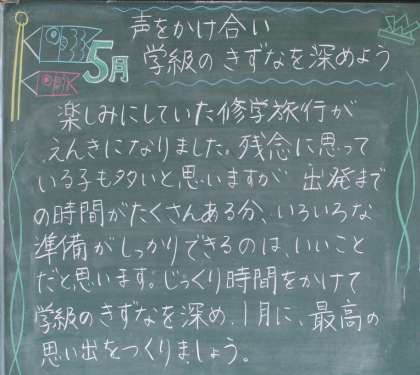 5月
声をかけ合い
学級のきずなを深めよう
楽しみにしていた修学旅行が
えんきになりました。残念に思って
いる子も多いと思いますが 出発まで
の時間がたくさんある分、いろいろな
準備がしっかりできるのは、いいこと
だと思います。じっくり時間をかけて
学級のきずなを深め、1月に、最高の
思い出をつくりましょう。